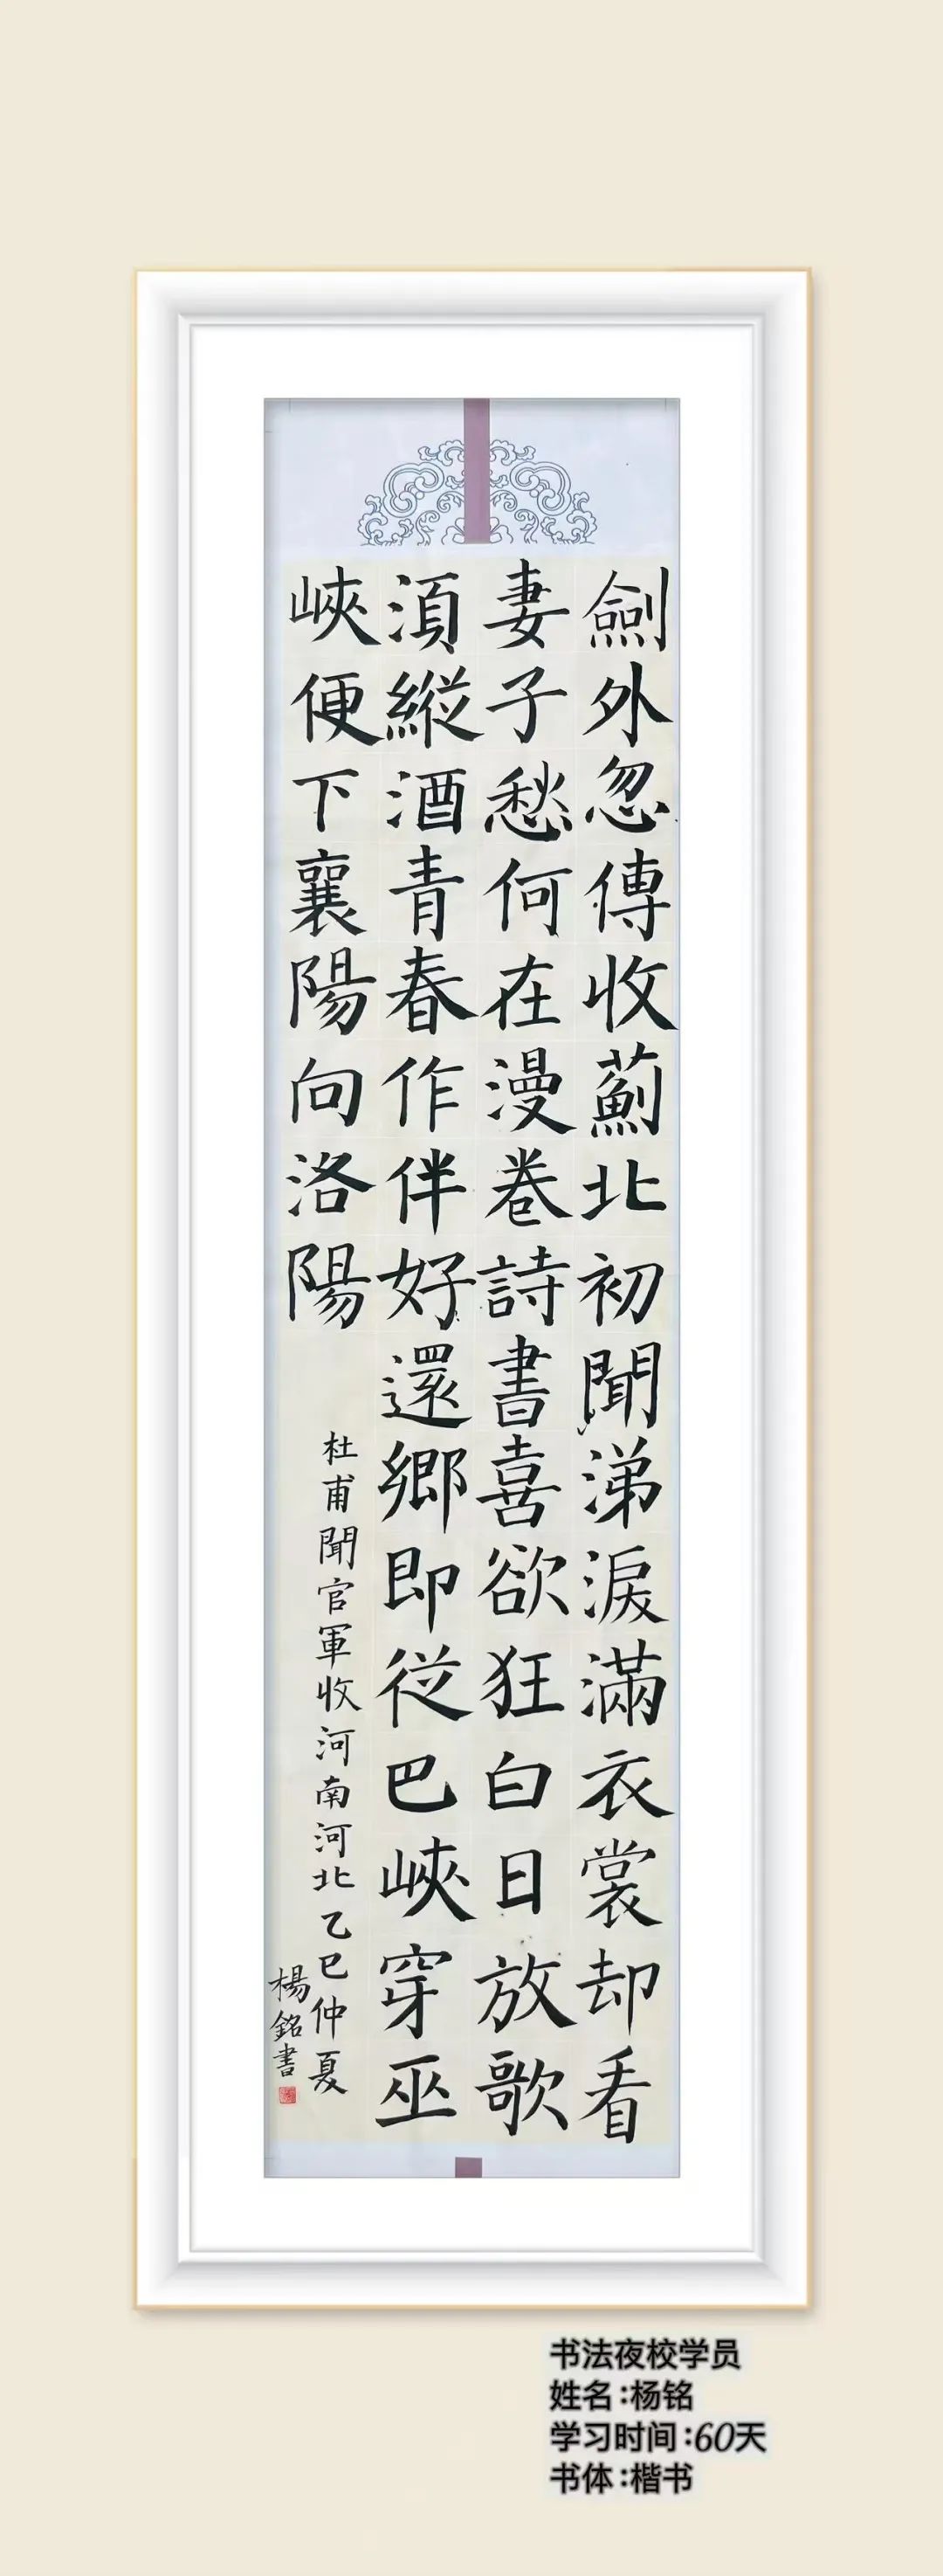 劍外忽傳收薊北初聞涕淚滿衣裳却看
妻子愁何在漫卷詩書喜欲狂白日放歌
湏縱酒青春作伴好還鄉即從巴峽穿巫
峽便下襄陽向洛陽
杜甫聞官軍收河南河北乙巳仲夏
楊銘書
书法夜校学员
姓名:杨铭
学习时间:60天
书体:楷书